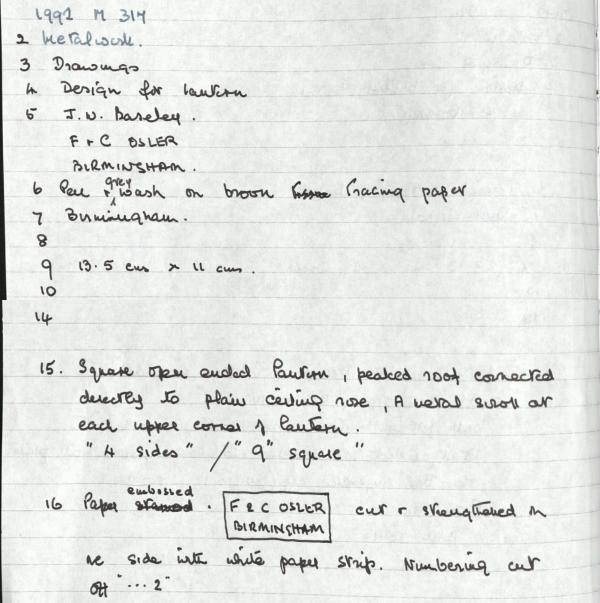 1992 M 314
2 Metalwork.
3 Drawings
4 Design for lantern
5 J.W. Baseley.
F & C OSLER
BIRMINGHAM.
6 Pen & grey wash on brown tissue tracing paper
7 Birmingham.
8
9 13.5 cms x 11 cms.
10
14
15. Square open ended lantern, peaked roof connected
directly to plain ceiling rose, A metal scroll at
each upper corner of lantern.
"4 sides" / "9" square"
16 Paper stamped embossed. F & C OSLER cut & strengthened on
BIRMINGHAM
one side with white paper strip. Numbering cut
off "...2"